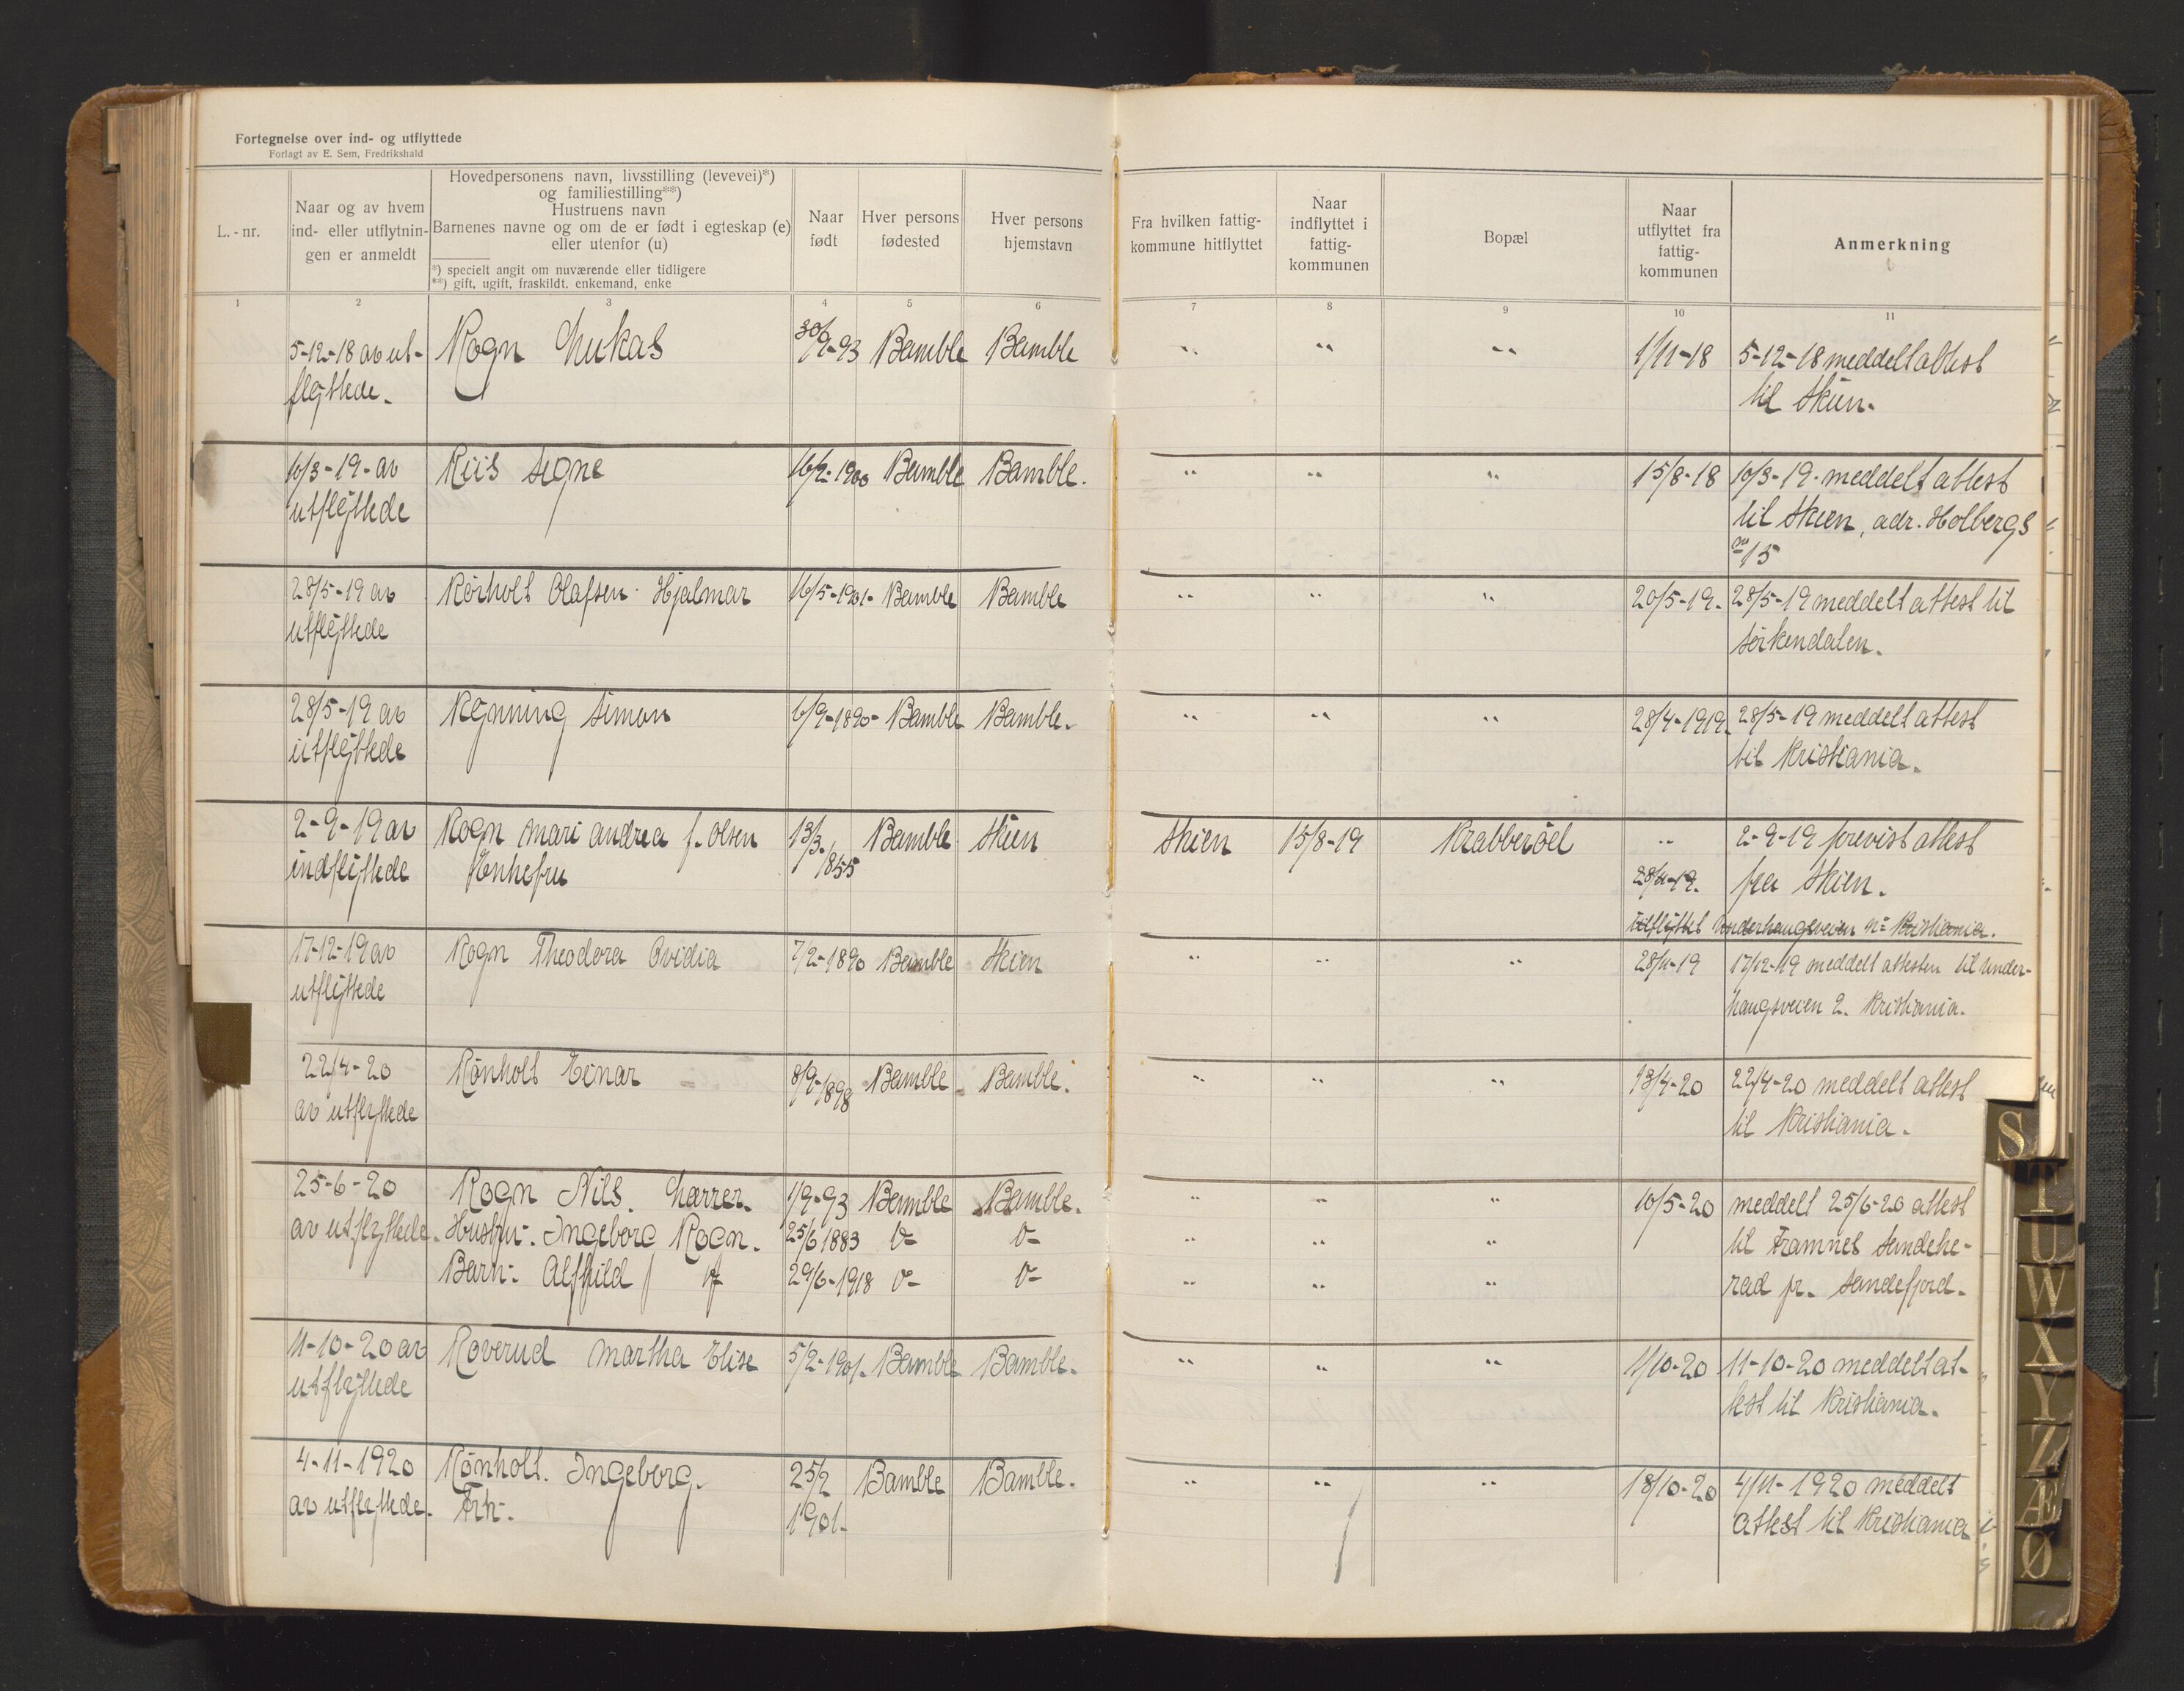 Fortegnelse over ind- og utflyttede
Forlagt av E. Sem, Fredrikshald
L.-nr.
Naar og av hvem
ind- eller utflytnin-
gen er anmeldt
Hovedpersonens navn, livsstilling (levevei)*)
og familiestilling**)
Hustruens navn
Barnenes navne og om de er født i egteskap (e)
eller utenfor (u)
*) specielt angit om nuværende eller tidligere
**) gift, ugift, fraskildt. enkemand, enke
Naar
født
Hver persons
fødested
Hver persons
hjemstavn
Fra hvilken fattig-
kommune hitflyttet
Naar
indflyttet i
fattig-
kommunen
Bopæl
Naar
utflyttet fra
fattig-
kommunen
Anmerkning
1 2 3 4 5 6 7 8 9 10 11
5-12-18 av ut- Rogn Lukas 30/9-93 Bamble Bamble " " " 1/11-18 5-12-18 meddelt attest
flyttede. til Skien.
10/3-19- av Riis Signe 16/2-1900 Bamble Bamble. " " " 15/8-18 10/3-19. meddelt attest
utflyttede til Skien, adr. Holbergs
no 15
28/5-19 av Rörholt Olafsen Hjalmar 16/5-1901- Bamble Bamble " " " 20/5-19. 28/5-19 meddelt attest til
utflyttede Sörkendalen.
28/5-19 av Rynning Simon 6/9-1890- Bamble Bamble. " " " 28/4-1919. 28/5-19 meddelt attest
utflyttede til Kristiania.
2-9-19 av Rogn Mari Andrea f. Olsen 13/3. Bamble Skien Skien 15/8-19 Krabberöd " 2-9-19 forevist attest
indflyttede Enkefru 1855 28/11-19. fra Skien.
Utflyttet Underhaugsveien n: Kristiania.
17-12-19 av Rogn Theodora Ovidia 7/2-1890 Bamble Skien " " " 28/11-19 17/12-19 meddelt attesten til Under-
utflyttede haugsveien 2. Kristiania.
22/4-20 Rönholt Einar 8/9-1898 Bamble Bamble. " " " 13/4-20 22/4-20 meddelt attest
av utflyttede til Kristiania.
25-6-20 Rogn Nils. Larsen. 1/9-93 Bamble Bamble. " " " 10/5-20 meddelt 25/6-20 attest
av utflyttede. Hustru:. Ingeborg Rogn. 25/6 1883 v- v- " " " til Framnes Sandehe-
Barn:. Alfhild 29/6-1918 v- v- " " " rad pr. Sandefjord.
11-10-20 av Roverud Martha Elise 5/2-1901. Bamble Bamble. " " " 1/10-20 11-10-20 meddelt at-
utflyttede test til Kristiania.
4-11-1920 Rönholt. Ingeborg. 25/2 Bamble Bamble. " " " 18/10-20 4/11-1920 meddelt
av utflyttede. 1901- attest til Kristiania
S
T
U
W
X
Y
Z
Æ
Ø